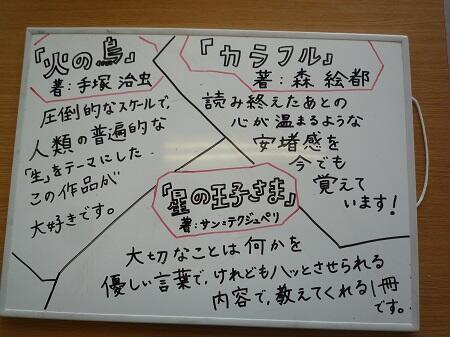 『火の鳥』
著:手塚 治虫
圧倒的なスケールで、
人類の普遍的な
「生」をテーマにした
この作品が
大好きです。
『カラフル』
著:森 絵都
読み終えたあとの
心が温まるような
安堵感を
今でも
覚えて
います!
『星の王子さま』
著:サン=テクジュペリ
大切なことは何かを
優しい言葉で、けれどもハッとさせられる
内容で、教えてくれる1冊
です。